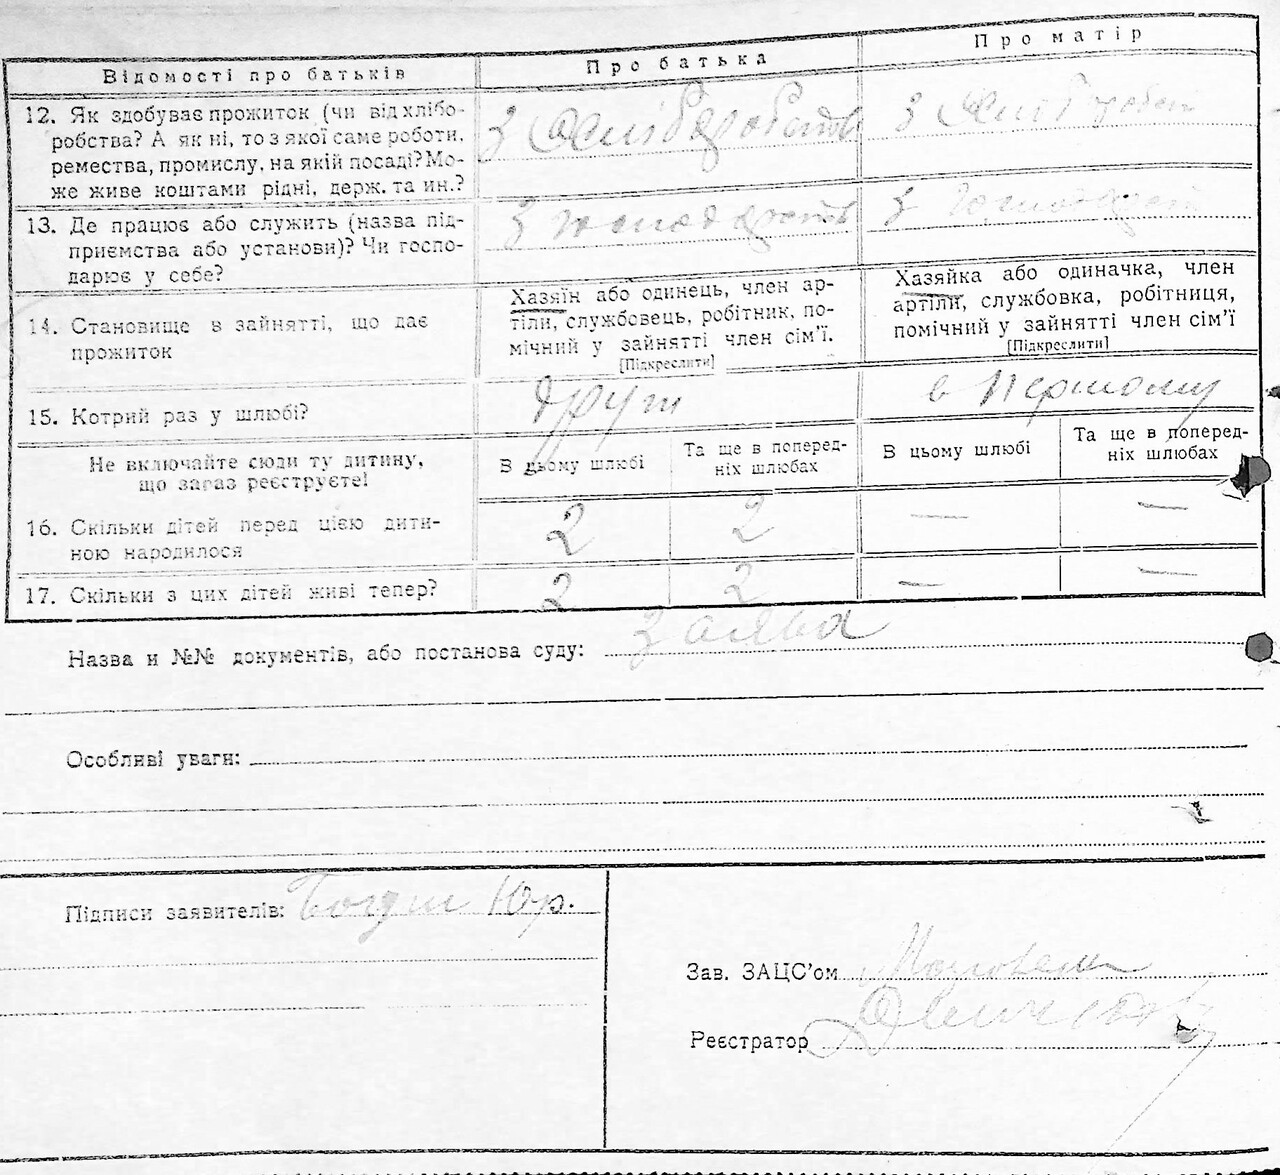 Відомості про батьків
Про батька
Про матір
12. Як здобуває прожиток (чи від хлібо-
робства? А як ні, то з якої саме роботи,
ремества, промислу, на якій посаді? Мо-
же живе коштами рідні, держ. та ин.?
З хліборобств
З хлібороб
13. Де працює або служить (назва під-
приємства або установи)? Чи госпо-
дарює у себе?
З господарств
З господарств
14. Становище в зайнятті, що дає
прожиток
Хазяїн або одинець, член ар-
тіли, службовець, робітник, по-
мічний у зайнятті член сім'ї.
[Підкреслити]
Хазяйка або одиначка, член
артіли, службовка, робітниця,
помічний у зайнятті член сім'ї
[Підкреслити]
15. Котрий раз у шлюбі?
друг
в першому
Не включайте сюди ту дитину,
що зараз реєструєте!
В цьому шлюбі
Та ще в поперед-
ніх шлюбах
В цьому шлюбі
Та ще в поперед-
ніх шлюбах
16. Скільки дітей перед цією дити-
ною народилося
2
2
—
—
17. Скільки з цих дітей живі тепер?
2
2
—
—
Назва и №№ документів, або постанова суду: Заява
Особливі уваги:
Підписи заявителів: Юр.
Зав. ЗАЦС'ом
Реєстратор